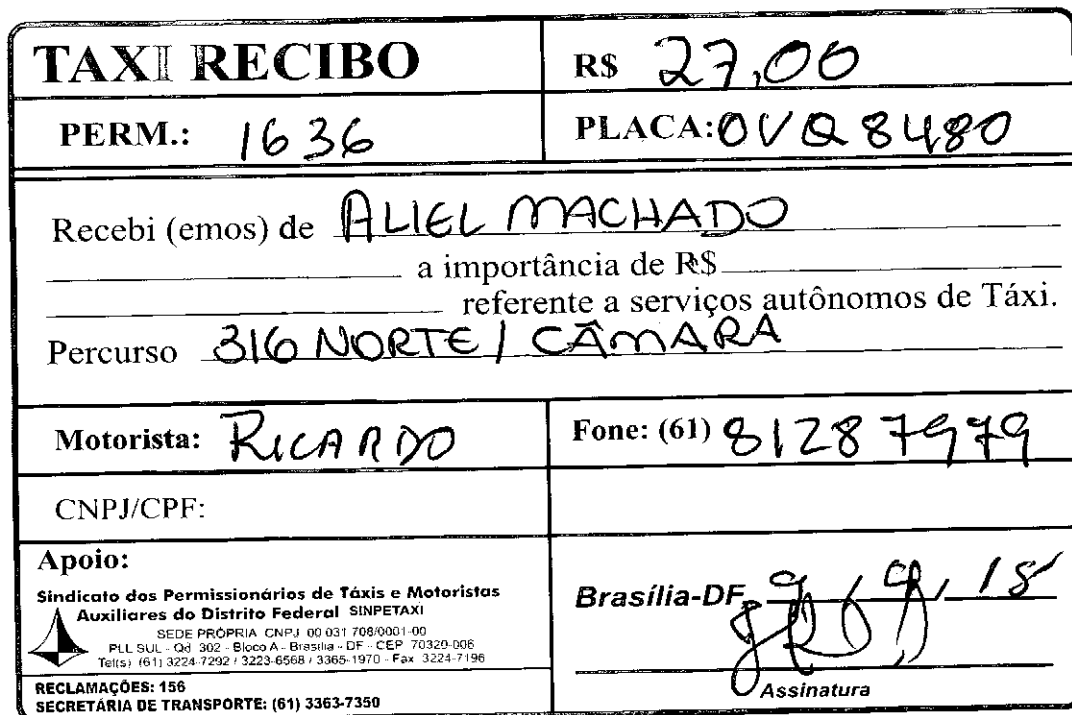 TAXI RECIBO
R$ 27,00
PERM.: 1636
PLACA: OVQ 8480
Recebi (emos) de ALIEL MACHADO
a importância de R$
referente a serviços autônomos de Táxi.
Percurso 316 NORTE / CÂMARA
Motorista: RICARDO
Fone: (61) 8128 7979
CNPJ/CPF:
Apoio:
Sindicato dos Permissionários de Táxis e Motoristas
Auxiliares do Distrito Federal SINPETAXI
SEDE PRÓPRIA CNPJ 00 031 708/0001-00
PLL SUL - Qd 302 - Bloco A - Brasília - DF - CEP 70320-006
Tel(s) (61) 3224-7292 / 3223-6568 / 3365-1970 - Fax 3224-7196
RECLAMAÇÕES: 156
SECRETÁRIA DE TRANSPORTE: (61) 3363-7350
Brasília-DF, 9, 9, 15
Assinatura